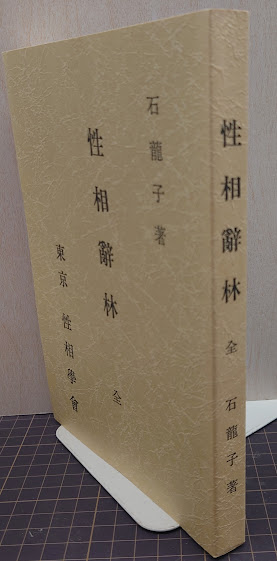 石龍子著
性相辭林 全
東京 性相學會
性相辭林 全 石龍子著